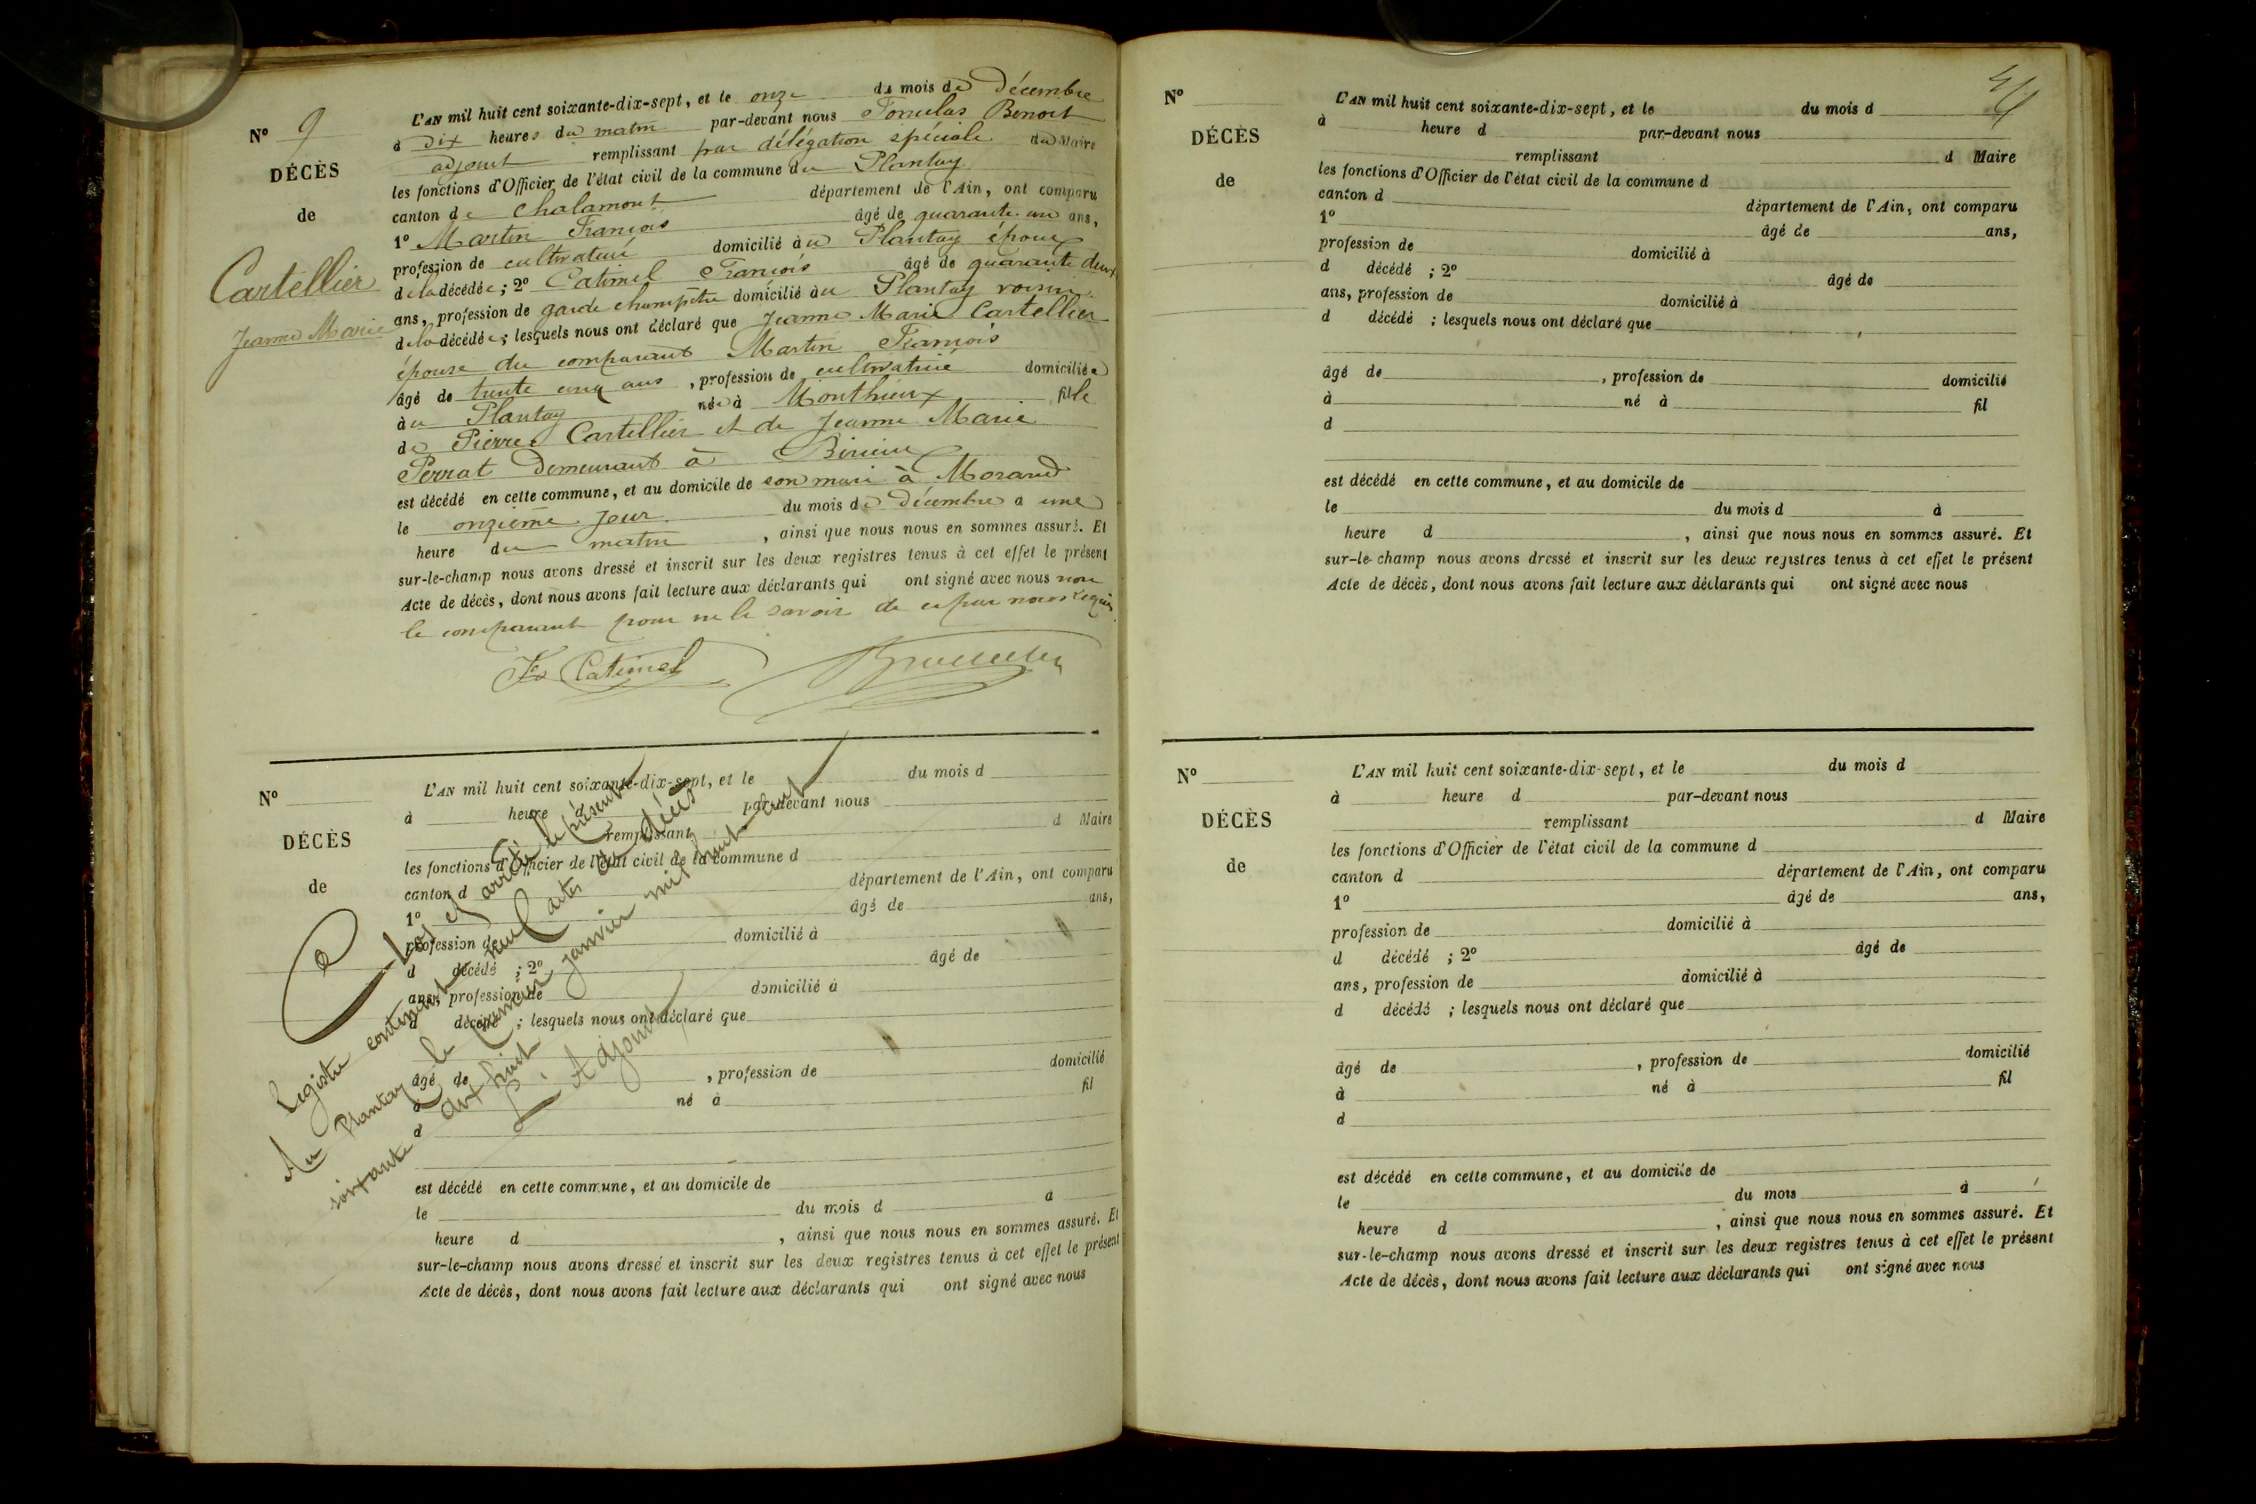 N° 9
DÉCÈS
de
Cartellier
Jeanne Marie
L'AN mil huit cent soixante-dix-sept, et le onze du mois de Décembre
à dix heures du matin par-devant nous Benoit
adjoint remplissant par délégation spéciale du Maire
les fonctions d'Officier de l'état civil de la commune du Plantay
canton de Chalamont département de l'Ain, ont comparu
1° Martin François âgé de quarante un ans,
profession de cultivateur domicilié au Plantay époux
de la décédée ; 2° Catimel François âgé de quarante deux
ans, profession de garde champêtre domicilié au Plantay voisin
de la décédée ; lesquels nous ont déclaré que Jeanne Marie Cartellier
épouse du comparant Martin François
âgé de trente cinq ans , profession de cultivatrice domiciliée
au Plantay née à Monthieux fille
de Pierre Cartellier et de Jeanne Marie
Perrat Demeurant à Birieux
est décédé en cette commune, et au domicile de son mari à Morand
le onzième jour du mois de Décembre a une
heure du matin , ainsi que nous nous en sommes assuré. Et
sur-le-champ nous avons dressé et inscrit sur les deux registres tenus à cet effet le présent
Acte de décès, dont nous avons fait lecture aux déclarants qui ont signé avec nous non
le comparant pour ne le savoir de ce par nous requis
Catimel
N°
DÉCÈS
de
L'AN mil huit cent soixante-dix-sept, et le du mois d
à heure d par-devant nous
remplissant d Maire
les fonctions d'Officier de l'état civil de la commune d
canton d département de l'Ain, ont comparu
1° âgé de ans,
profession de domicilié à
d décédé ; 2° âgé de
ans, profession de domicilié à
d décédé ; lesquels nous ont déclaré que
âgé de , profession de domicilié
à né à fil
d
est décédé en cette commune, et au domicile de
le du mois d à
heure d , ainsi que nous nous en sommes assuré. Et
sur-le-champ nous avons dressé et inscrit sur les deux registres tenus à cet effet le présent
Acte de décès, dont nous avons fait lecture aux déclarants qui ont signé avec nous
Clos et arrêté le présent
Registre contenant neuf actes de décès
Au Plantay le premier janvier mil huit cent
soixante dix huit
L'Adjoint
N°
DÉCÈS
de
L'AN mil huit cent soixante-dix-sept, et le du mois d
à heure d par-devant nous
remplissant d Maire
les fonctions d'Officier de l'état civil de la commune d
canton d département de l'Ain, ont comparu
1° âgé de ans,
profession de domicilié à
d décédé ; 2° âgé de
ans, profession de domicilié à
d décédé ; lesquels nous ont déclaré que
âgé de , profession de domicilié
à né à fil
d
est décédé en cette commune, et au domicile de
le du mois d à
heure d , ainsi que nous nous en sommes assuré. Et
sur-le-champ nous avons dressé et inscrit sur les deux registres tenus à cet effet le présent
Acte de décès, dont nous avons fait lecture aux déclarants qui ont signé avec nous
N°
DÉCÈS
de
L'AN mil huit cent soixante-dix-sept, et le du mois d
à heure d par-devant nous
remplissant d Maire
les fonctions d'Officier de l'état civil de la commune d
canton d département de l'Ain, ont comparu
1° âgé de ans,
profession de domicilié à
d décédé ; 2° âgé de
ans, profession de domicilié à
d décédé ; lesquels nous ont déclaré que
âgé de , profession de domicilié
à né à fil
d
est décédé en cette commune, et au domicile de
le du mois à
heure d , ainsi que nous nous en sommes assuré. Et
sur-le-champ nous avons dressé et inscrit sur les deux registres tenus à cet effet le présent
Acte de décès, dont nous avons fait lecture aux déclarants qui ont signé avec nous